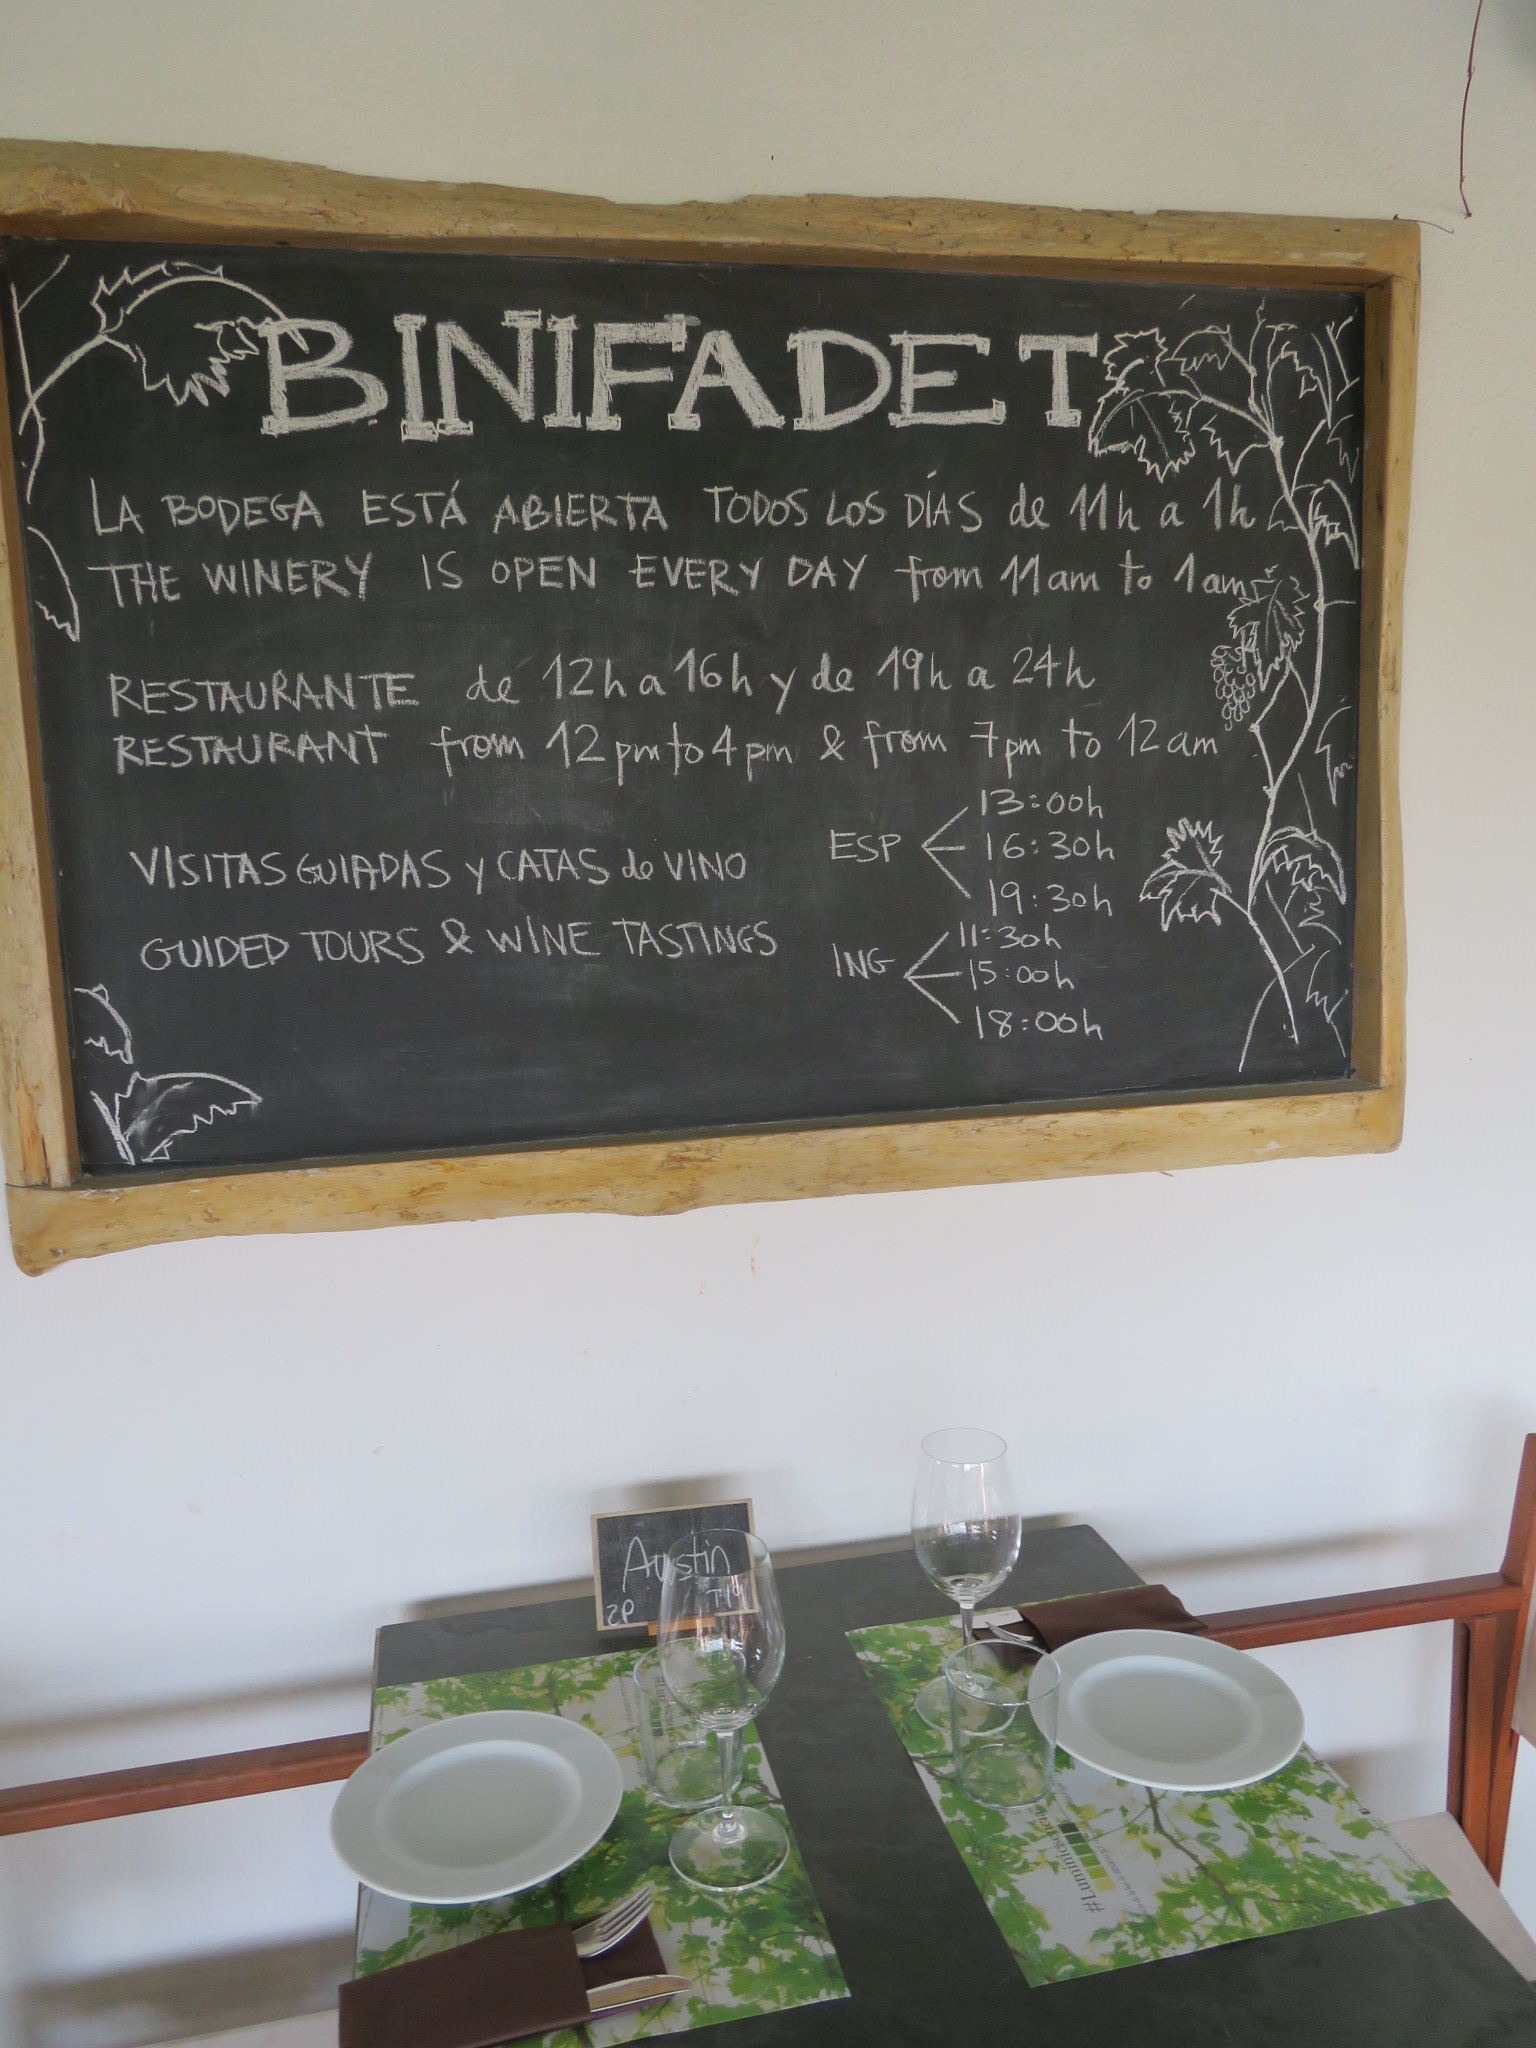 BINIFADET
LA BODEGA ESTÁ ABIERTA TODOS LOS DÍAS de 11h a 1h
THE WINERY IS OPEN EVERY DAY from 11am to 1am
RESTAURANTE de 12h a 16h y de 19h a 24h
RESTAURANT from 12pm to 4pm & from 7pm to 12am
VISITAS GUIADAS y CATAS de VINO
ESP
13:00h
16:30h
19:30h
GUIDED TOURS & WINE TASTINGS
ING
11:30h
15:00h
18:00h
Austin
2P T19